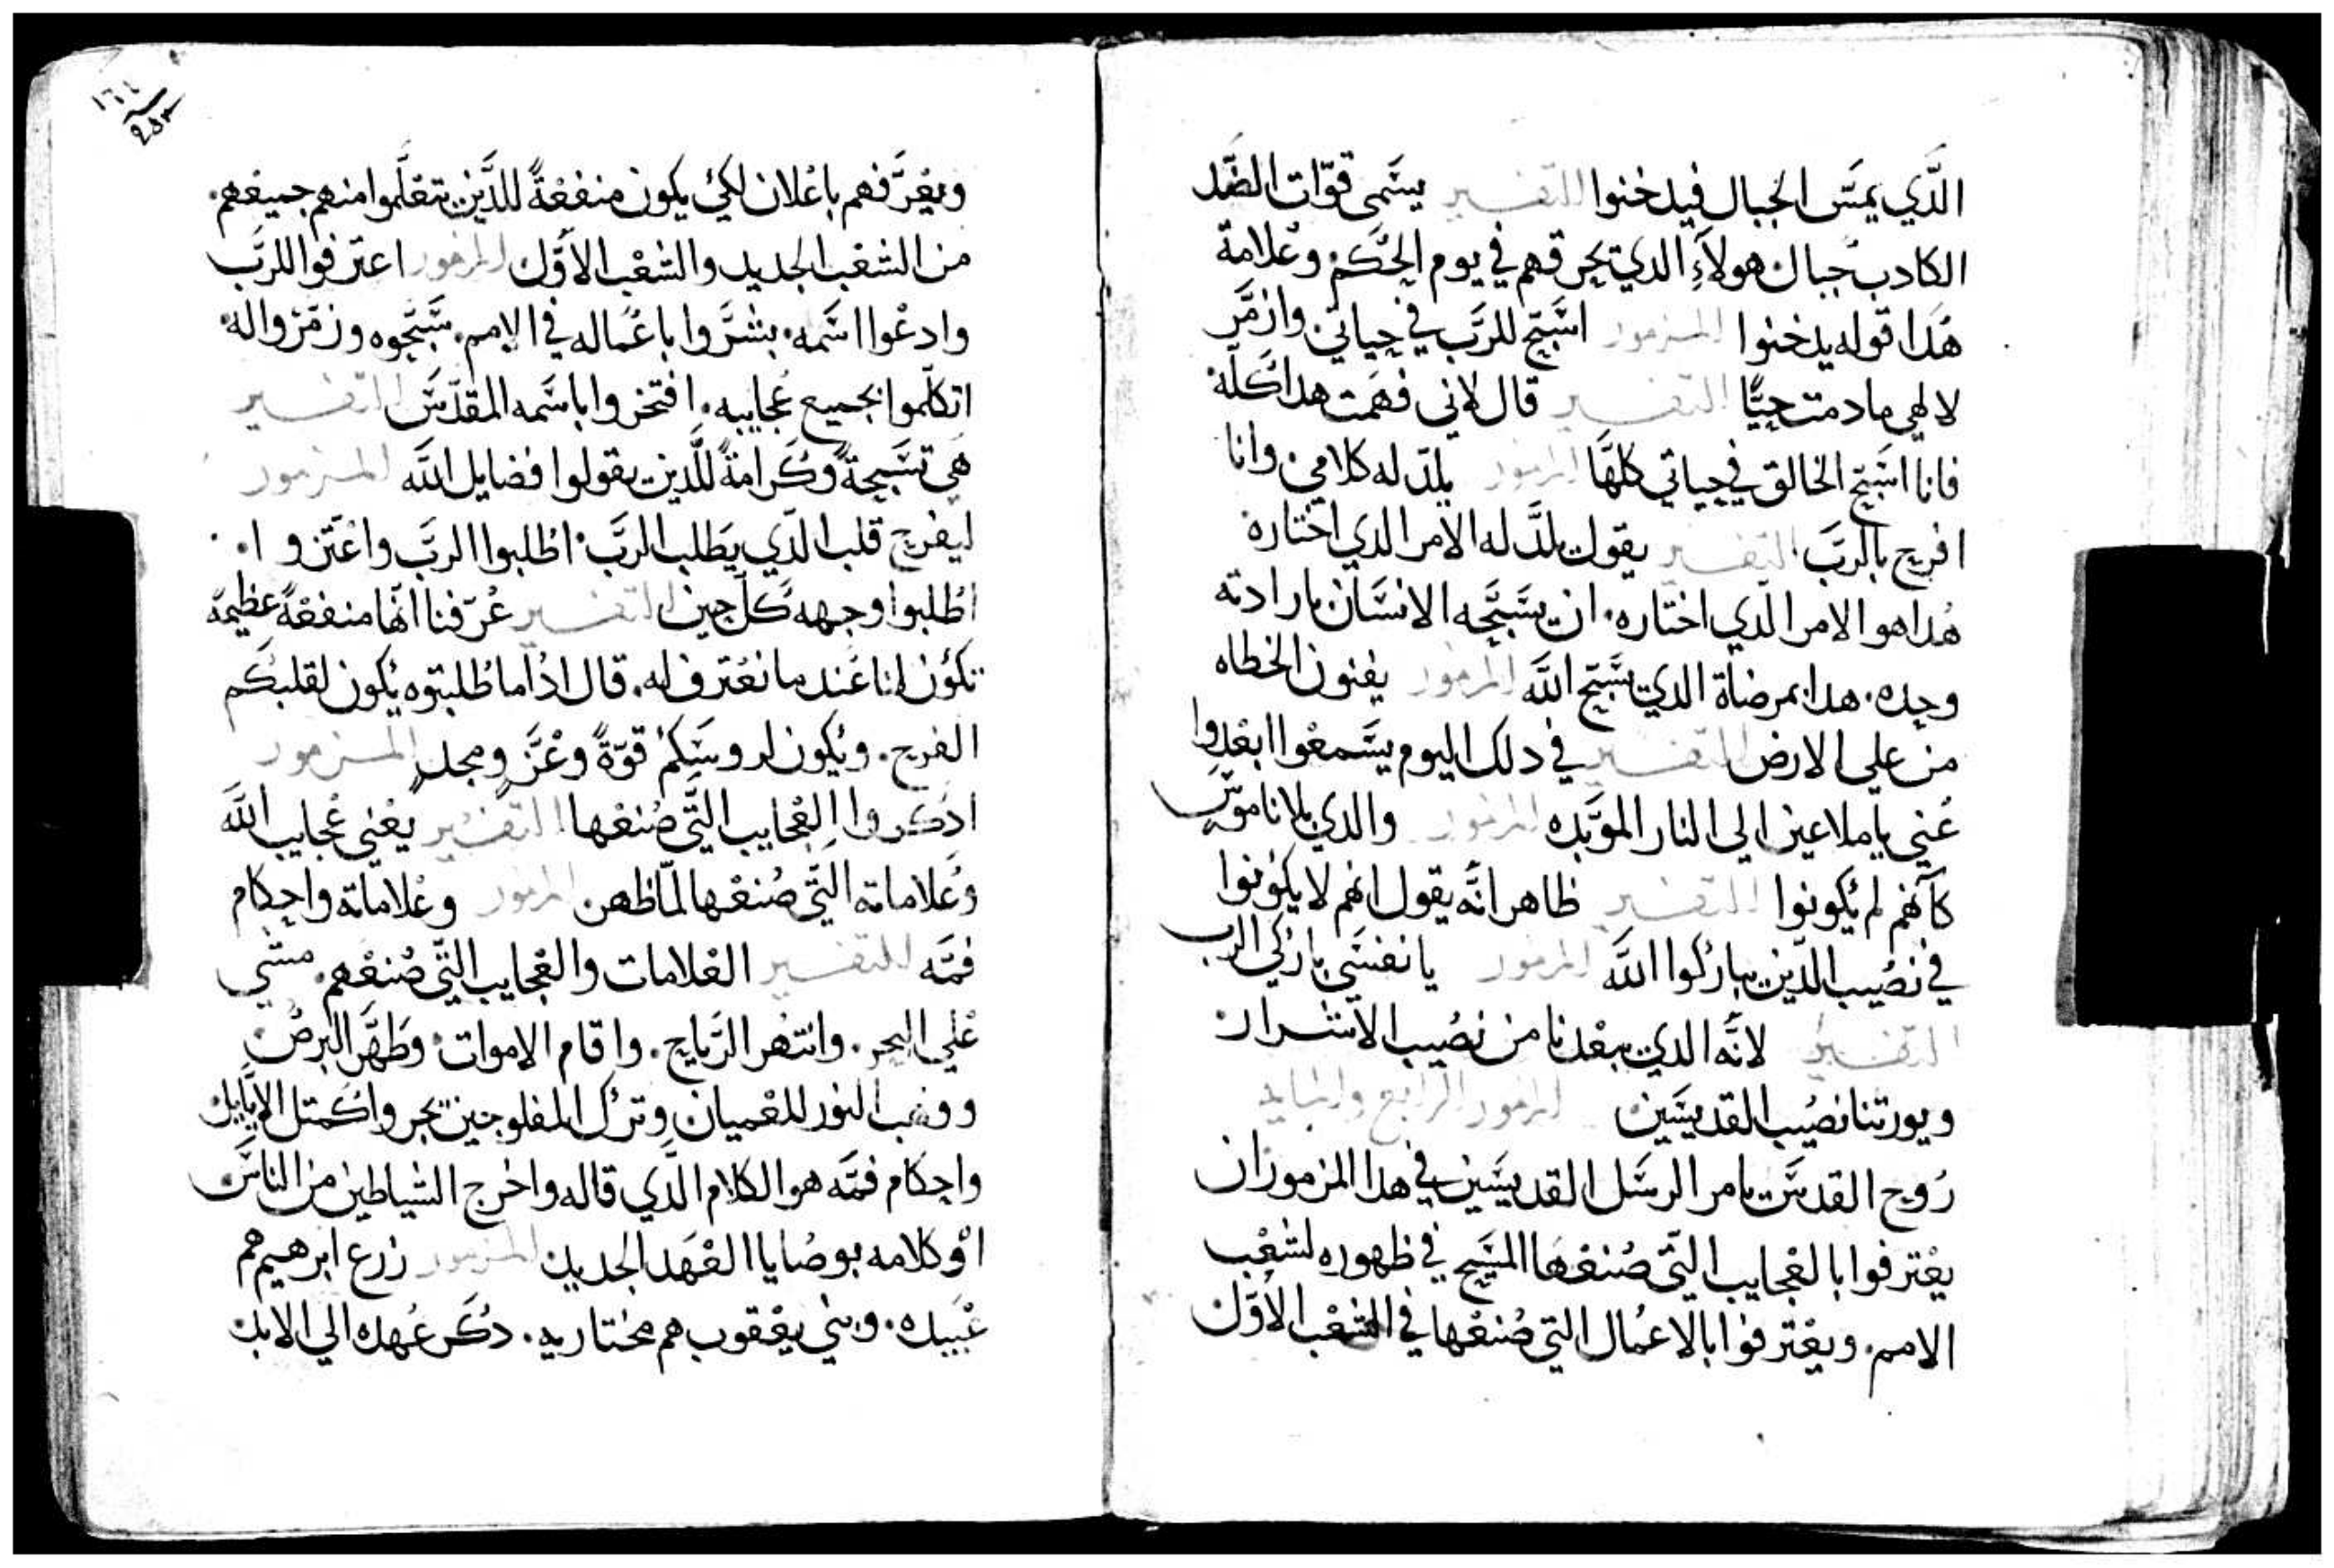 الدَّي يمسَّ الجبال فيدخنوا للتفسير يسمى قوّات الضد
الكادب جبال هولاَءِ الدي يحرقهم في يوم الحُكم وعلامة
هَدا قوله يدخنوا المزمور اسَبّح للرَّب في حياتي وازمَّر
لالهي مادمت حيًّا التفسير قال لاني فهمَت هدا كلّه
فانا اسَبّح الخالق في حياتي كلهَّا المزمور يلدّ له كلامي وانا
افرح بالرَبَّ التفسير يقول يلدَّ له الامر الدي اختاره
هَدا هو الامر الدَّي اختاره. ان يسَبّحه الانسَان بارادته
وحده. هدا بمرضاة الدي يسَبّح اللَّه المزمور يفنون الخطاه
من علي الارض التفسير في دلك اليوم يسَمعْوا ابعْدوا
عَني يا ملاعين الي النار الموَبَده المزمور والدي بلا ناموسَ
كاَنهَم لم يُكونوا التفسير ظاهر انَّه يقول انهم لا يكونوا
في نصُيب الدّين يباركوا اللَّه المزمور يا نفسَي باركي الرب
التفسير لانَّه الدي يبعْدنا من نصُيب الاشرار
ويورتنا نصُيب القديسَين المزمور الرابع والمايه
رُوح القدسَ يامر الرسَل القديسَين في هدا المزمور ان
يعْترفوا بالعْجايب التّي صُنعْها المسَيح في ظهوره لشعْب
الامم. ويعْترفوا بالاعمْال التي صُنعْها في الشعْب الاَوّل
ويعْرَّفهم باعْلان لكيُ يكون منفعْةً للدَّين يتعْلَّموا منهم جميعْهم.
من الشعْب الجديد والشعْب الاَوّل المزمور اعترفوا للرَّب
وادعْوا اسَمه. بشَّروا باعْماله في الامم. سَبّحوه وزمّروا له
اتكلّموا بجميع عْجايبه. افتخروا باسَمه المقدّسَ التفسير
هَي تسَبحةً وكَرامةً للَّدين يقولوا فضايل اللَّه المزمور
ليفرح قلب الدّي يَطلب الربَّ. اطلبوا الربَّ واعْتزوا.
اطُلبوا وجهه كلَّ حين التفسير عُرّفنا انهَّا منفعْةً عظيمة
تكُون لنا عْند ما نعْترف له. قال ادُاما طُلبتوه يُكون لقلبكَم
الفرح. ويُكون لروسَكمْ قوّةً وعْزَّ ومجد المزمور
ادكَروا العْجايب التَّي صُنعْها التفسير يعْني عْجايب اللَّه
وعْلاماته التَّي صُنعْها لماّ ظهر المزمور وعْلاماته واحكام
فمَّه التفسير العْلامات والعْجايب التَّي صُنعْهم. مشي
عْلي البحر. وانتهر الرَّياح. واقام الاموات. وطَهَّر البرصُ
ووهب النور للعْميان وترك المفلوجين تجر واكَمتل الاَيايل
واحكام فمَّه هو الكلام الدَّي قاله واخرج الشياطين من الناسَ
اوْ كلامه بوصُايا العْهَد الجديد المزمور زرع ابرهيم هم
عْبيده. وبني يعْقوب هم مختاريه. دكَر عْهده الي الابد